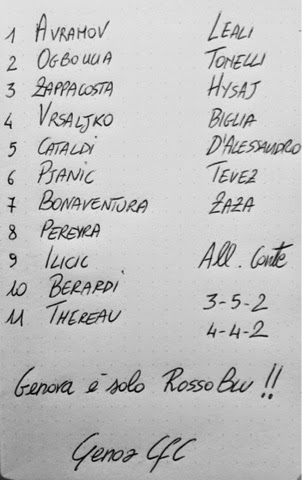 1 AVRAMOV
2 OGBOUUA
3 ZAPPACOSTA
4 VRSALJKO
5 CATALDI
6 PJANIC
7 BONAVENTURA
8 PEREYRA
9 ILICIC
10 BERARDI
11 THEREAU
LEALI
TONELLI
HYSAJ
BIGLIA
D'ALESSANDRO
TEVEZ
ZAZA
All. Conte
3-5-2
4-4-2
Genova è solo RossoBlu !!
Genoa CFC